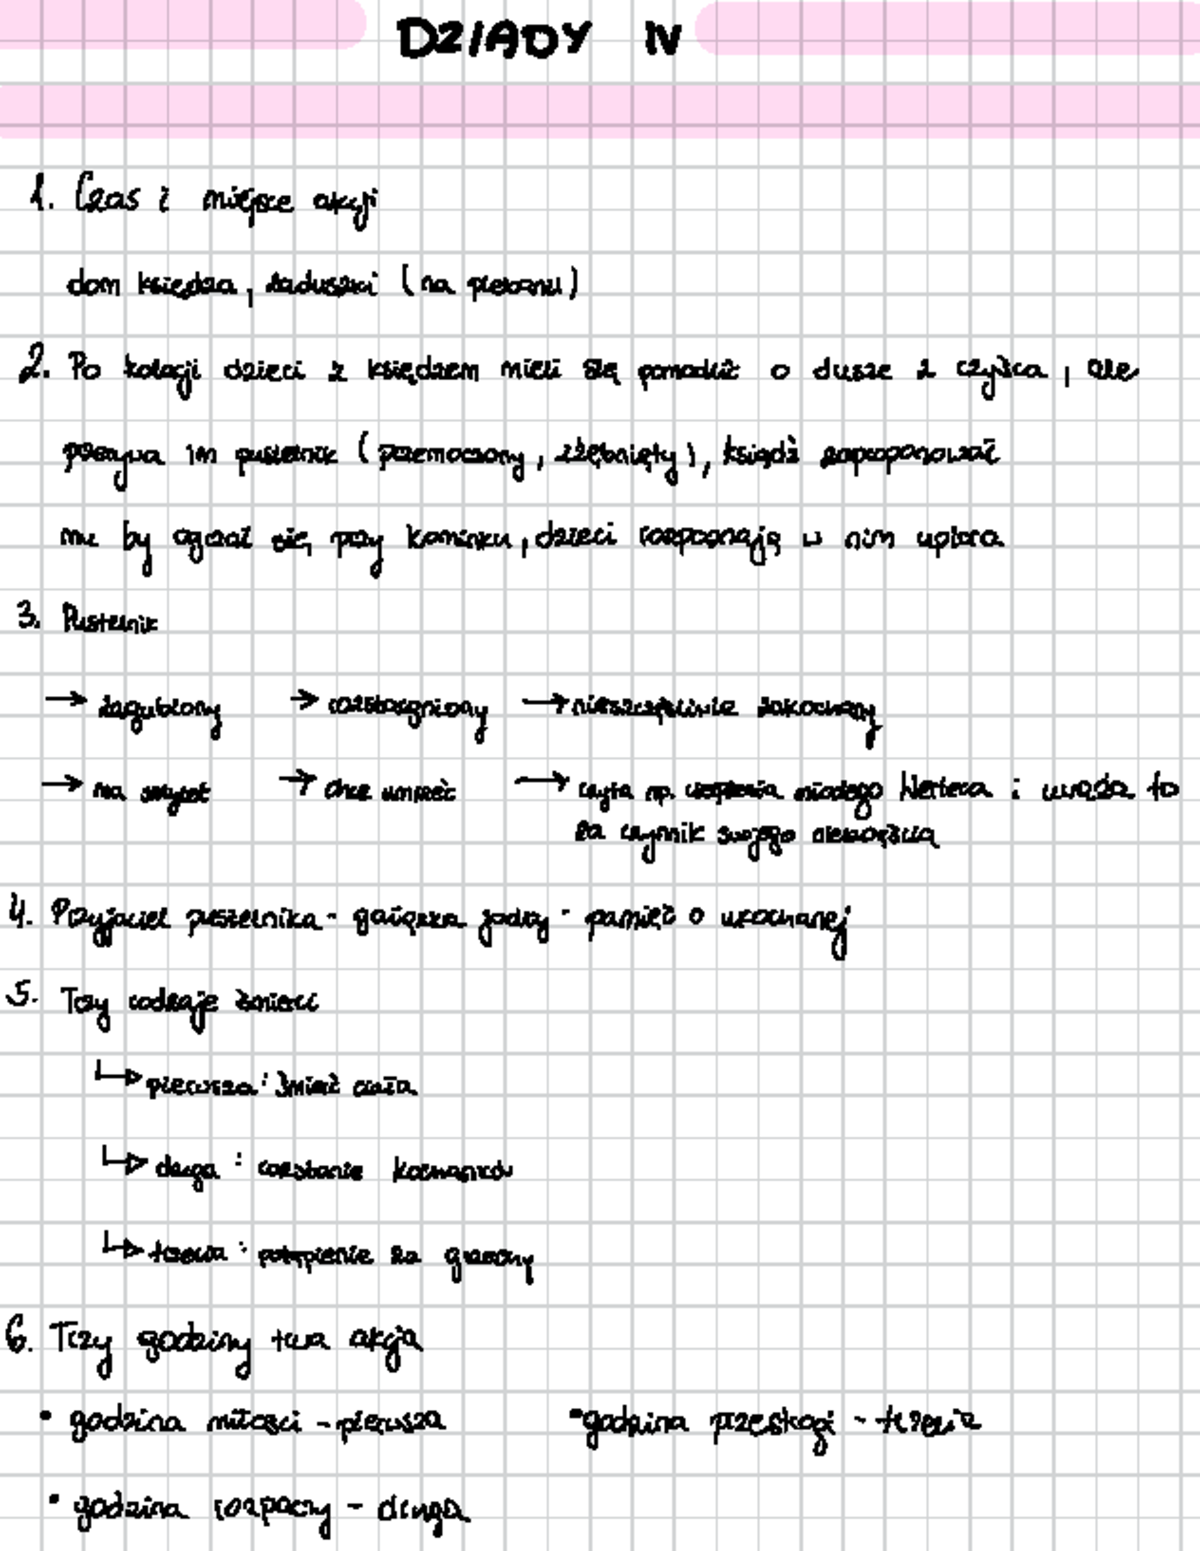 DZIADY IV
1. Czas i miejsce akcji
dom księdza, zaduszki (na plebanii)
2. Po kolacji dzieci z księdzem mieli się pomodlić o dusze z czyśca, ale
przerywa im pustelnik (przemoczony, zziębnięty), ksiądz zaproponował
mu by ogrzał się przy kominku, dzieci rozpoznają w nim upiora.
3. Pustelnik
→ zagubiony → roztargniony → nieszczęśliwie zakochany
→ ma sztylet → chce umrzeć → czyta np. cierpienia młodego Wertera i uważa to
za czynnik swojego nieszczęścia
4. Przyjaciel pustelnika - gałązka jodły - pamięć o ukochanej
5. Trzy rodzaje śmierci
↳ pierwsza: śmierć ciała
↳ druga: rozstanie kochanków
↳ trzecia: potępienie za grzechy
6. Trzy godziny trwa akcja
• godzina miłości - pierwsza • godzina przestrogi - trzecia
• godzina rozpaczy - druga